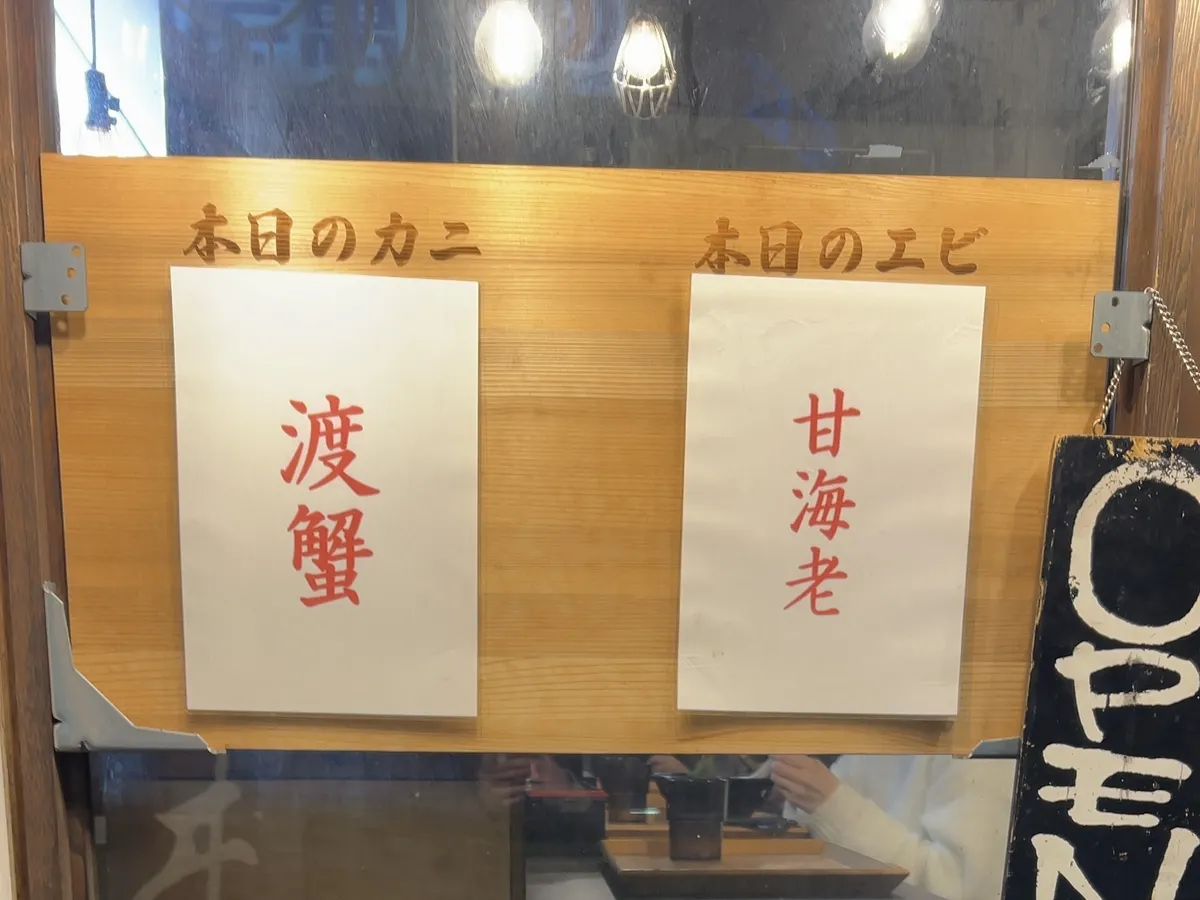 本日のカニ
渡蟹
本日のエビ
甘海老
OPEN